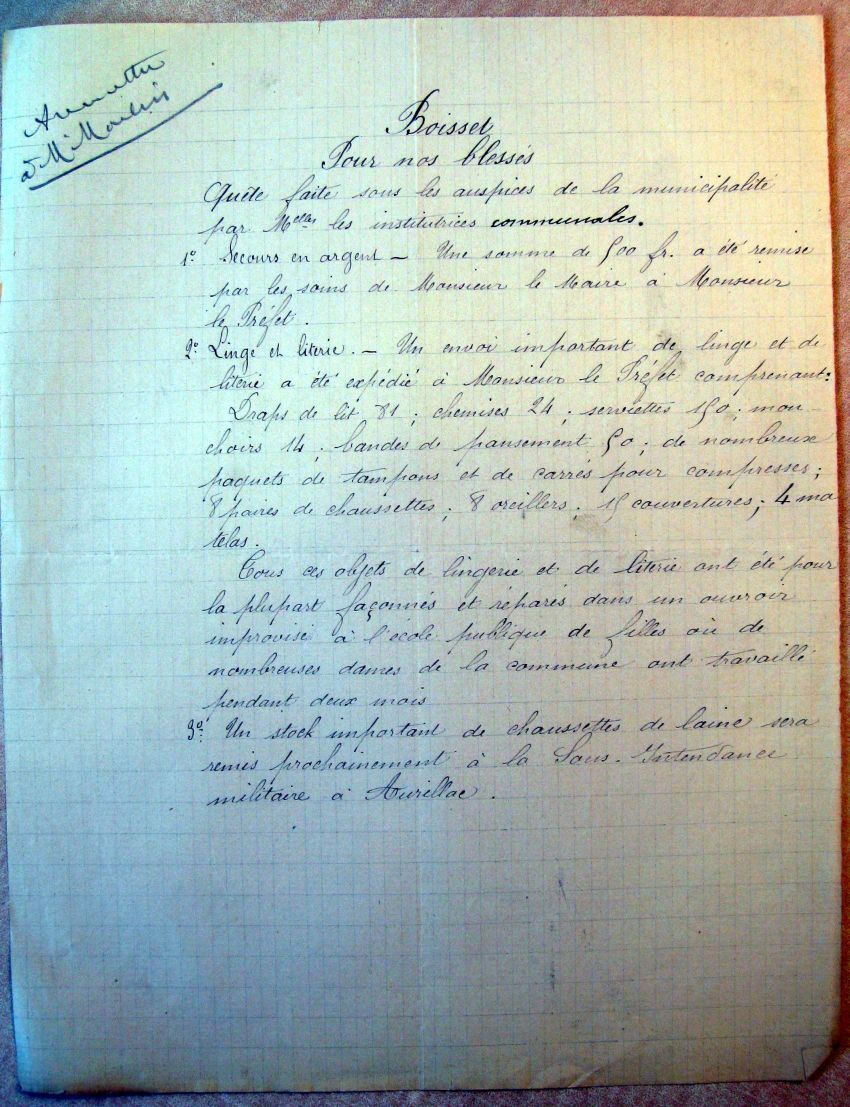 à Mr
Boisset
Pour nos blessés
Quête faite sous les auspices de la municipalité
par Melles les institutrices communales.
1º Secours en argent — Une somme de 500 fr. a été remise
par les soins de Monsieur le Maire à Monsieur
le Préfet.
2º Linge et literie. — Un envoi important de linge et de
literie a été expédié à Monsieur le Préfet comprenant:
Draps de lit 81 ; chemises 24 ; serviettes 150 ; mou
choirs 14 ; bandes de pansement 50 ; de nombreux
paquets de tampons et de carrés pour compresses ;
8 paires de chaussettes ; 8 oreillers. 15 couvertures ; 4 ma
telas.
Tous ces objets de lingerie et de literie ont été pour
la plupart façonnés et réparés dans un ouvroir
improvisé à l'école publique de filles où de
nombreuses dames de la commune ont travaillé
pendant deux mois
3º. Un stock important de chaussettes de laine sera
remis prochainement à la Sous-Intendance
militaire à Aurillac.